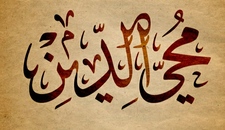 مُحْيِ الدِّيْنْ